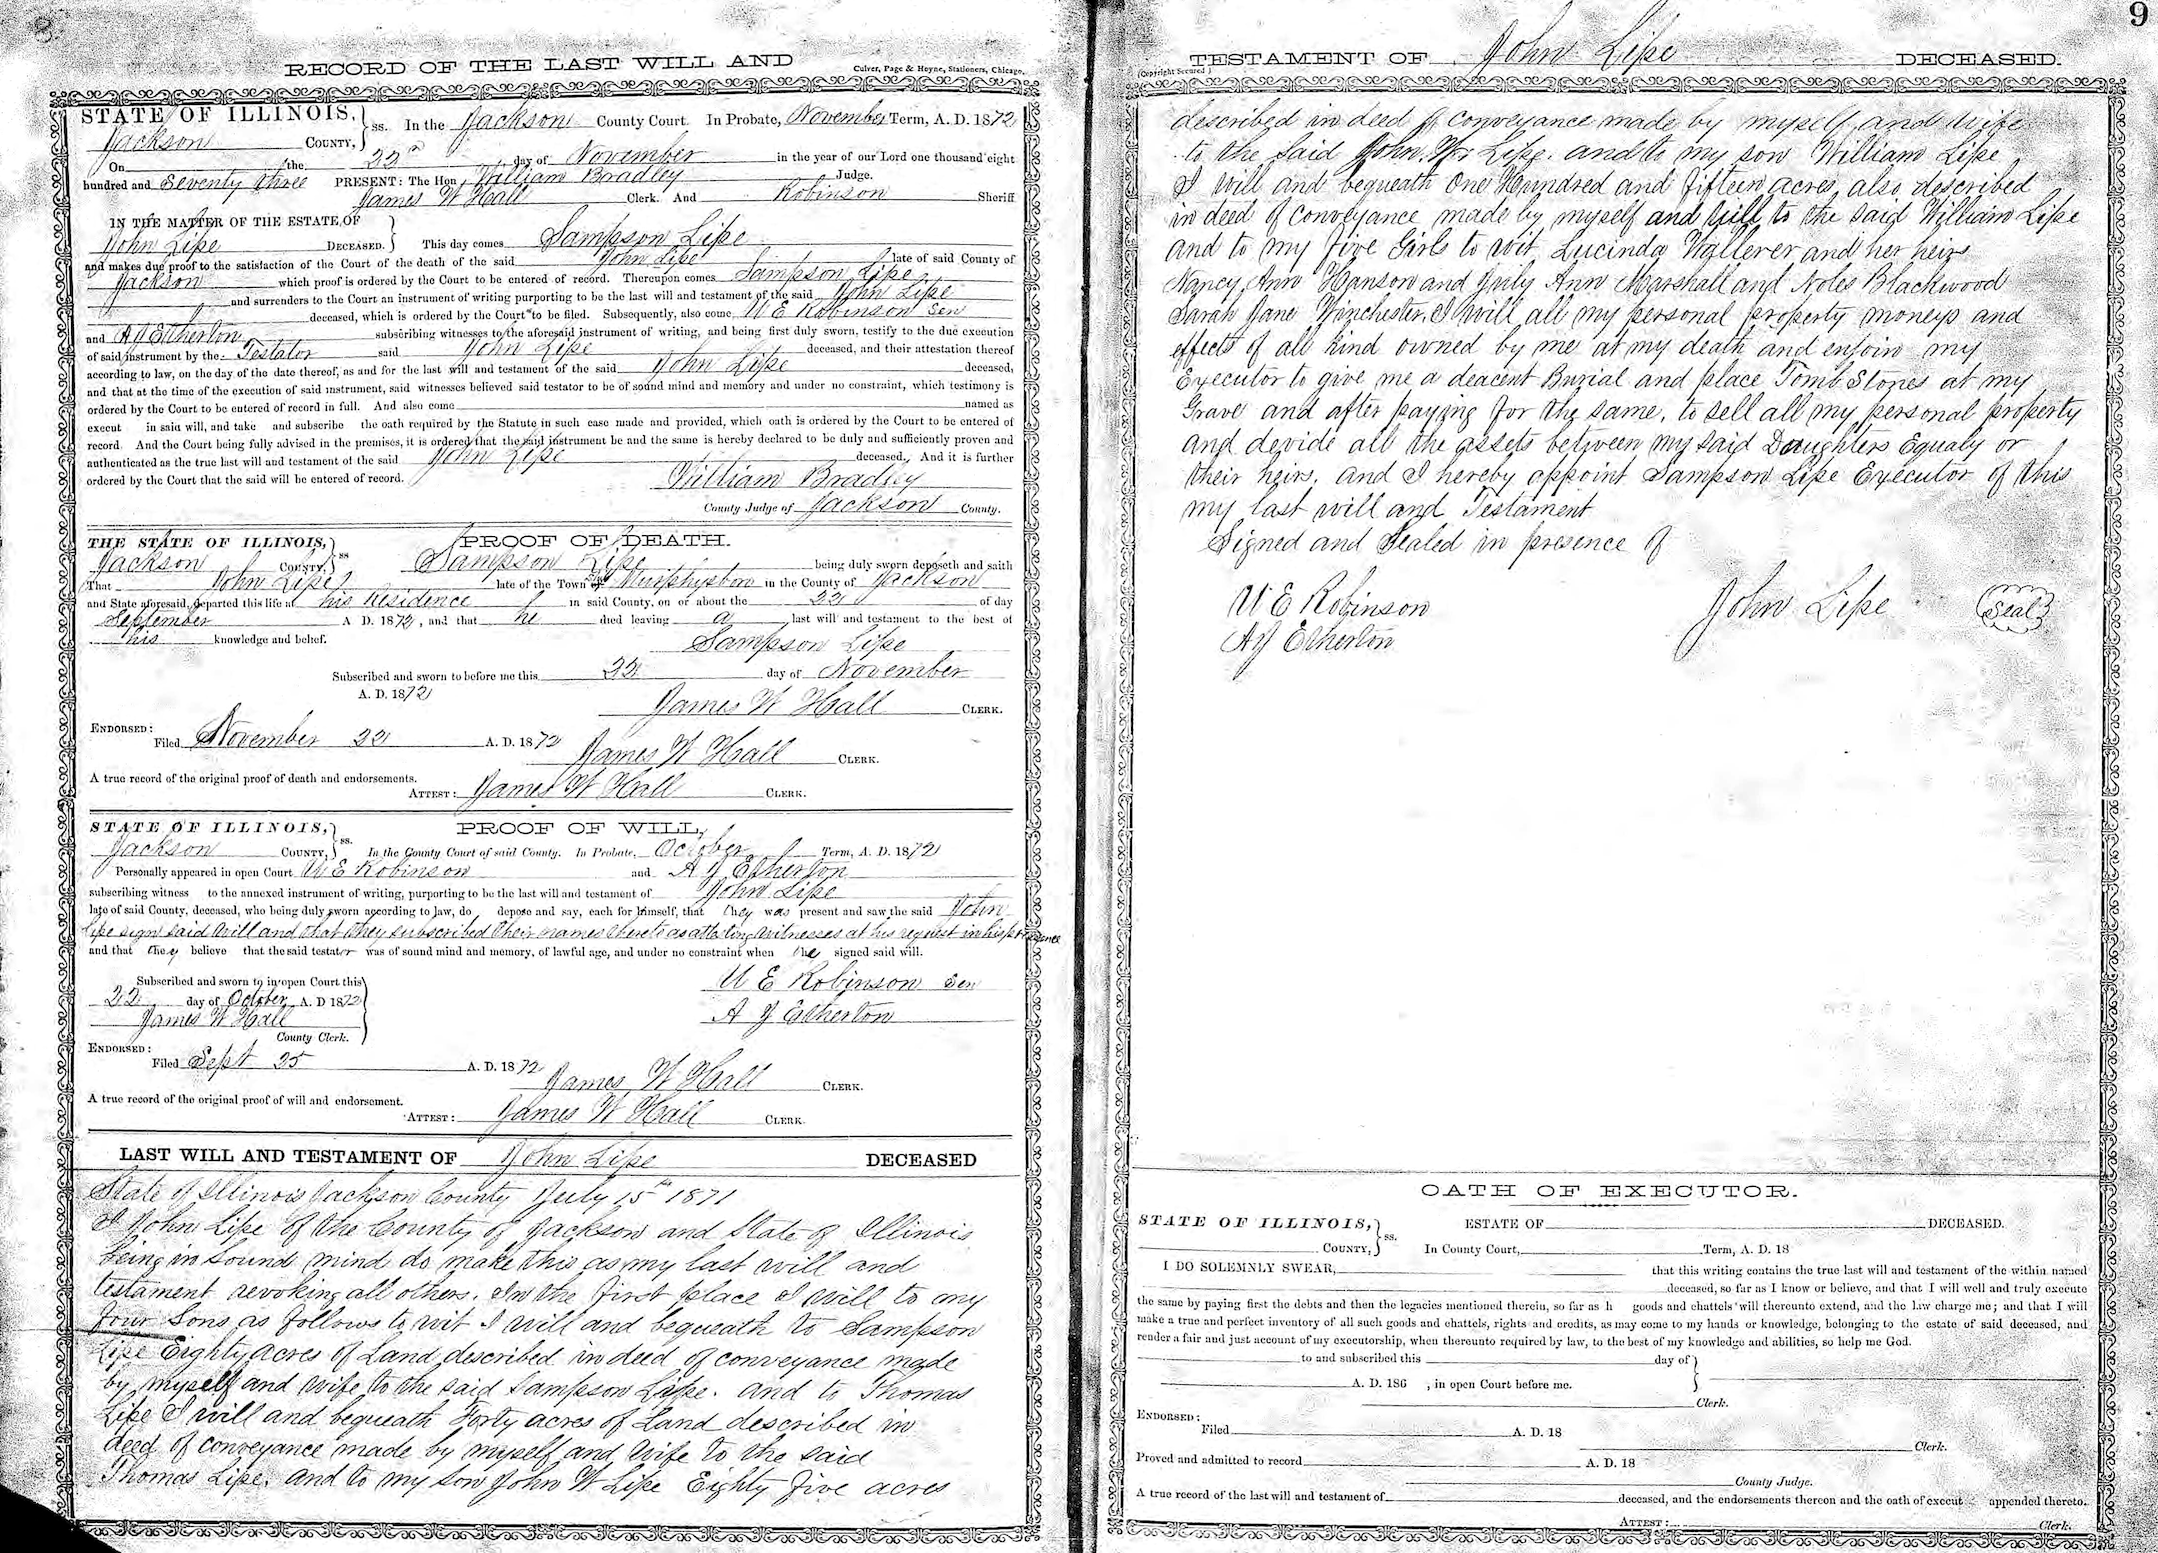 RECORD OF THE LAST WILL AND
Culver, Page & Hoyne, Stationers, Chicago.
STATE OF ILLINOIS, ss. In the Jackson County Court. In Probate, November Term, A. D. 1872
Jackson COUNTY,
On the 22nd day of November in the year of our Lord one thousand eight
hundred and Seventy three PRESENT: The Hon. William Bradley Judge.
James W Hall Clerk. And Robinson Sheriff
IN THE MATTER OF THE ESTATE OF
John Lipe DECEASED. This day comes Sampson Lipe
and makes due proof to the satisfaction of the Court of the death of the said John Lipe late of said County of
Jackson which proof is ordered by the Court to be entered of record. Thereupon comes Sampson Lipe
and surrenders to the Court an instrument of writing purporting to be the last will and testament of the said John Lipe
deceased, which is ordered by the Court to be filed. Subsequently, also come W E Robinson Sen
and A J Etherton subscribing witnesses to the aforesaid instrument of writing, and being first duly sworn, testify to the due execution
of said instrument by the Testator said John Lipe deceased, and their attestation thereof
according to law, on the day of the date thereof, as and for the last will and testament of the said John Lipe deceased,
and that at the time of the execution of said instrument, said witnesses believed said testator to be of sound mind and memory and under no constraint, which testimony is
ordered by the Court to be entered of record in full. And also come named as
execut in said will, and take and subscribe the oath required by the Statute in such case made and provided, which oath is ordered by the Court to be entered of
record. And the Court being fully advised in the premises, it is ordered that the said instrument be and the same is hereby declared to be duly and sufficiently proven and
authenticated as the true last will and testament of the said John Lipe deceased. And it is further
ordered by the Court that the said will be entered of record.
William Bradley
County Judge of Jackson County.
THE STATE OF ILLINOIS, ss PROOF OF DEATH.
Jackson COUNTY, Sampson Lipe being duly sworn deposeth and saith
That John Lipe late of the Town of Murphysboro in the County of Jackson
and State aforesaid, departed this life at his Residence in said County, on or about the 22 of day
September A D. 1872, and that he died leaving a last will and testament to the best of
his knowledge and belief.
Sampson Lipe
Subscribed and sworn to before me this 22 day of November
A. D. 1872
James W Hall CLERK.
ENDORSED:
Filed November 22 A. D. 1872
James W Hall CLERK.
A true record of the original proof of death and endorsements.
ATTEST: James W Hall CLERK.
STATE OF ILLINOIS, ss. PROOF OF WILL,
Jackson COUNTY, In the County Court of said County. In Probate, October Term, A. D. 1872
Personally appeared in open Court W E Robinson and A J Etherton
subscribing witness to the annexed instrument of writing, purporting to be the last will and testament of John Lipe
late of said County, deceased, who being duly sworn according to law, do depose and say, each for himself, that they was present and saw the said John
Lipe sign said will and that they subscribed their names thereto as attesting witnesses at his request in his presence
and that they believe that the said testator was of sound mind and memory, of lawful age, and under no constraint when he signed said will.
Subscribed and sworn to in open Court this
22 day of October A. D 1872
James W Hall
County Clerk.
W E Robinson Sen
A J Etherton
ENDORSED:
Filed Sept 25 A. D. 1872
James W Hall CLERK.
A true record of the original proof of will and endorsement.
ATTEST: James W Hall CLERK.
LAST WILL AND TESTAMENT OF John Lipe DECEASED
State of Illinois Jackson County July 15th 1871
I John Lipe of the County of Jackson and State of Illinois
being in Sound mind do make this as my last will and
testament revoking all others. In the first place I will to my
four Sons as follows to wit I will and bequeath to Sampson
Lipe Eighty acres of Land described in deed of conveyance made
by myself and wife to the said Sampson Lipe. and to Thomas
Lipe I will and bequeath Forty acres of Land described in
deed of conveyance made by myself and wife to the said
Thomas Lipe. and to my son John W Lipe Eighty five acres
9
TESTAMENT OF John Lipe DECEASED.
(Copyright Secured)
described in deed of conveyance made by myself and wife
to the Said John W Lipe. and to my son William Lipe
I will and bequeath One Hundred and fifteen acres also described
in deed of conveyance made by myself and will to the said William Lipe
and to my five Girls to wit Lucinda Wallever and her heirs
Nancy Ann Hanson and July Ann Marshall and Notes Blackwood
Sarah Jane Winchester. I will all my personal property moneys and
effects of all kind owned by me at my death and enjoin my
Executor to give me a deacent Burial and place Tomb Stones at my
Grave and after paying for the same, to sell all my personal property
and devide all the assets between my said Daughters Equaly or
their heirs. and I hereby appoint Sampson Lipe Executor of this
my last will and Testament
Signed and Sealed in presence of
W E Robinson John Lipe (Seal)
A J Etherton
OATH OF EXECUTOR.
STATE OF ILLINOIS, ss. ESTATE OF DECEASED.
COUNTY, In County Court, Term, A. D. 18
I DO SOLEMNLY SWEAR, that this writing contains the true last will and testament of the within named
deceased, so far as I know or believe, and that I will well and truly execute
the same by paying first the debts and then the legacies mentioned therein, so far as h goods and chattels will thereunto extend, and the law charge me; and that I will
make a true and perfect inventory of all such goods and chattels, rights and credits, as may come to my hands or knowledge, belonging to the estate of said deceased, and
render a fair and just account of my executorship, when thereunto required by law, to the best of my knowledge and abilities, so help me God.
to and subscribed this day of
A. D. 186 , in open Court before me.
Clerk.
ENDORSED:
Filed A. D. 18
Clerk.
Proved and admitted to record A. D. 18
County Judge.
A true record of the last will and testament of deceased, and the endorsements thereon and the oath of execut appended thereto.
ATTEST: Clerk.